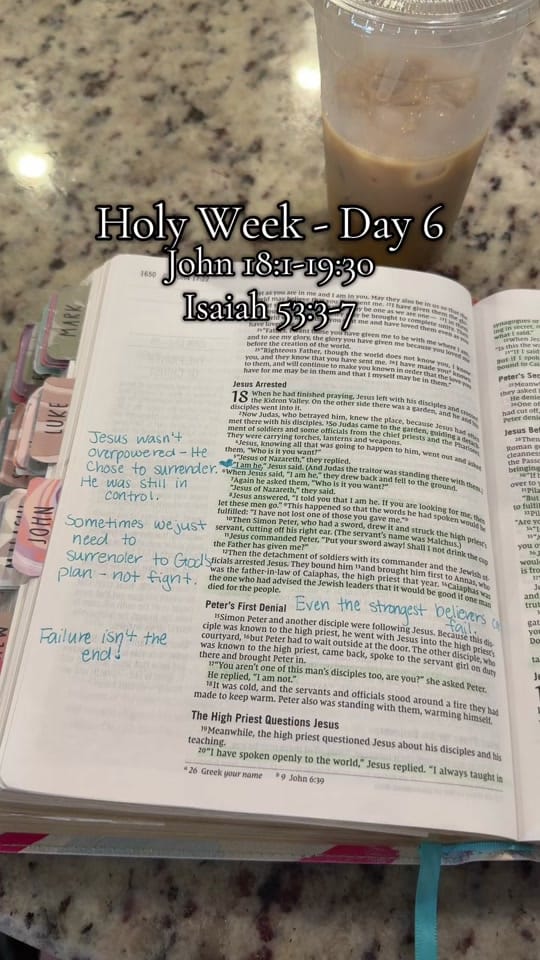 Holy Week - Day 6
John 18:1-19:30
Isaiah 53:3-7
1650
MARK
LUKE
JOHN
Jesus wasn't
overpowered - He
chose to surrender.
He was still in
control.
Sometimes we just
need to
surrender to God's
plan - not fight.
Failure isn't the
end!
as you are in me and I am in you. May they also be in us so that the
before the creation of the world.
"Righteous Father, though the world does not know you, I know
you, and they know that you have sent me. I have made you known
to them, and will continue to make you known in order that the love you
have for me may be in them and that I myself may be in them."
Jesus Arrested
18 When he had finished praying, Jesus left with his disciples and crossed
the Kidron Valley. On the other side there was a garden, and he and his
disciples went into it.
2Now Judas, who betrayed him, knew the place, because Jesus had often
met there with his disciples. 3So Judas came to the garden, guiding a detach-
ment of soldiers and some officials from the chief priests and the Pharisees.
They were carrying torches, lanterns and weapons.
4Jesus, knowing all that was going to happen to him, went out and asked
them, "Who is it you want?"
5"Jesus of Nazareth," they replied.
"I am he," Jesus said. (And Judas the traitor was standing there with them.)
6When Jesus said, "I am he," they drew back and fell to the ground.
7Again he asked them, "Who is it you want?"
"Jesus of Nazareth," they said.
8Jesus answered, "I told you that I am he. If you are looking for me, then
let these men go." 9This happened so that the words he had spoken would be
fulfilled: "I have not lost one of those you gave me."
10Then Simon Peter, who had a sword, drew it and struck the high priest's
servant, cutting off his right ear. (The servant's name was Malchus.)
11Jesus commanded Peter, "Put your sword away! Shall I not drink the cup
the Father has given me?"
12Then the detachment of soldiers with its commander and the Jewish of-
ficials arrested Jesus. They bound him 13and brought him first to Annas, who
was the father-in-law of Caiaphas, the high priest that year. 14Caiaphas was
the one who had advised the Jewish leaders that it would be good if one man
died for the people.
Peter's First Denial
Even the strongest believers can
fail.
15Simon Peter and another disciple were following Jesus. Because this dis-
ciple was known to the high priest, he went with Jesus into the high priest's
courtyard, 16but Peter had to wait outside at the door. The other disciple, who
was known to the high priest, came back, spoke to the servant girl on duty
there and brought Peter in.
17"You aren't one of this man's disciples too, are you?" she asked Peter.
He replied, "I am not."
18It was cold, and the servants and officials stood around a fire they had
made to keep warm. Peter also was standing with them, warming himself.
The High Priest Questions Jesus
19Meanwhile, the high priest questioned Jesus about his disciples and his
teaching.
20"I have spoken openly to the world," Jesus replied. "I always taught in
a 26 Greek your name b 9 John 6:39